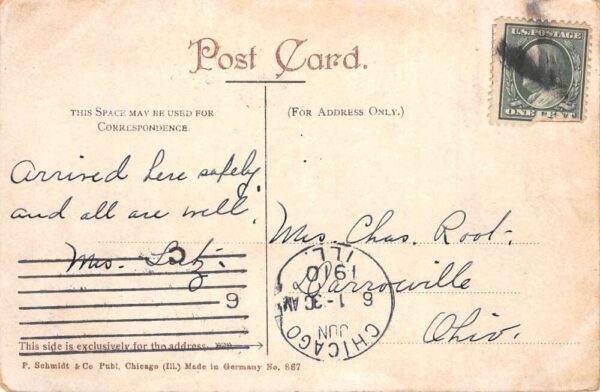 Post Card.
U.S. POSTAGE
ONE CENT
THIS SPACE MAY BE USED FOR
CORRESPONDENCE.
(FOR ADDRESS ONLY.)
Arrived here safely
and all are well.
Mrs. Lutz.
Mrs. Chas. Root.
Darrowville
Ohio.
C
9
CHICAGO
ILL.
JUN
6 1-30 AM
1910
This side is exclusively for the address.
P. Schmidt & Co Publ. Chicago (Ill.) Made in Germany No. 867